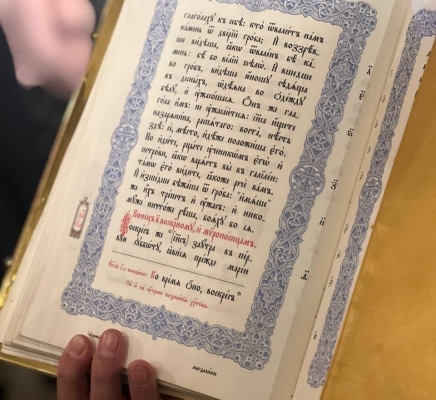 глаго́лахꙋ къ себѣ̀: кто̀ ѿвали́тъ на́мъ
ка́мень ѿ две́рїй гро́ба; И҆ воззрѣ́в-
шѧ ви́дѣша, ꙗ҆́кѡ ѿвале́нъ бѣ̀ ка́-
мень: бѣ́ бо ве́лїй ѕѣлѡ̀. И҆ вше́дшѧ
во гро́бъ, ви́дѣша ю҆́ношꙋ сѣдѧ́ща
въ десны́хъ, ѡ҆дѣ́ѧна во ѻ҆де́ждꙋ
бѣлꙋ̀, и҆ ᲂу҆жасо́шасѧ. Ѻ҆́нъ же гла-
го́ла и҆̀мъ: не ᲂу҆жаса́йтесѧ: і҆и҃са и҆́щете
назарѧни́на, ра́спѧтаго: воста̀, нѣ́сть
здѣ̀: сѐ, мѣ́сто, и҆дѣ́же положи́ша є҆го̀.
Но и҆ди́те, рцы́те ᲂу҆ченикѡ́мъ є҆гѡ̀ и҆
петро́ви, ꙗ҆́кѡ варѧ́етъ вы̀ въ галїле́и:
та́мѡ є҆го̀ ви́дите, ꙗ҆́коже речѐ ва́мъ.
И҆ и҆зше́дшѧ бѣжа́ша ѿ гро́ба: и҆мѧ́ше
же и҆̀хъ тре́петъ и҆ ᲂу҆́жасъ: и҆ нико-
мꙋ́же ничто́же рѣ́ша, боѧ́хꙋ бо сѧ.
Коне́цъ воскре́сномꙋ, и҆ мѵроно́сицамъ.
Воскре́съ же і҆и҃съ заꙋ́тра въ пе́р-
вꙋю сꙋббѡ́тꙋ, ꙗ҆ви́сѧ пре́жде марі́и
Во вре́мѧ ѻ҆́но, воскре́съ
магдали́ни